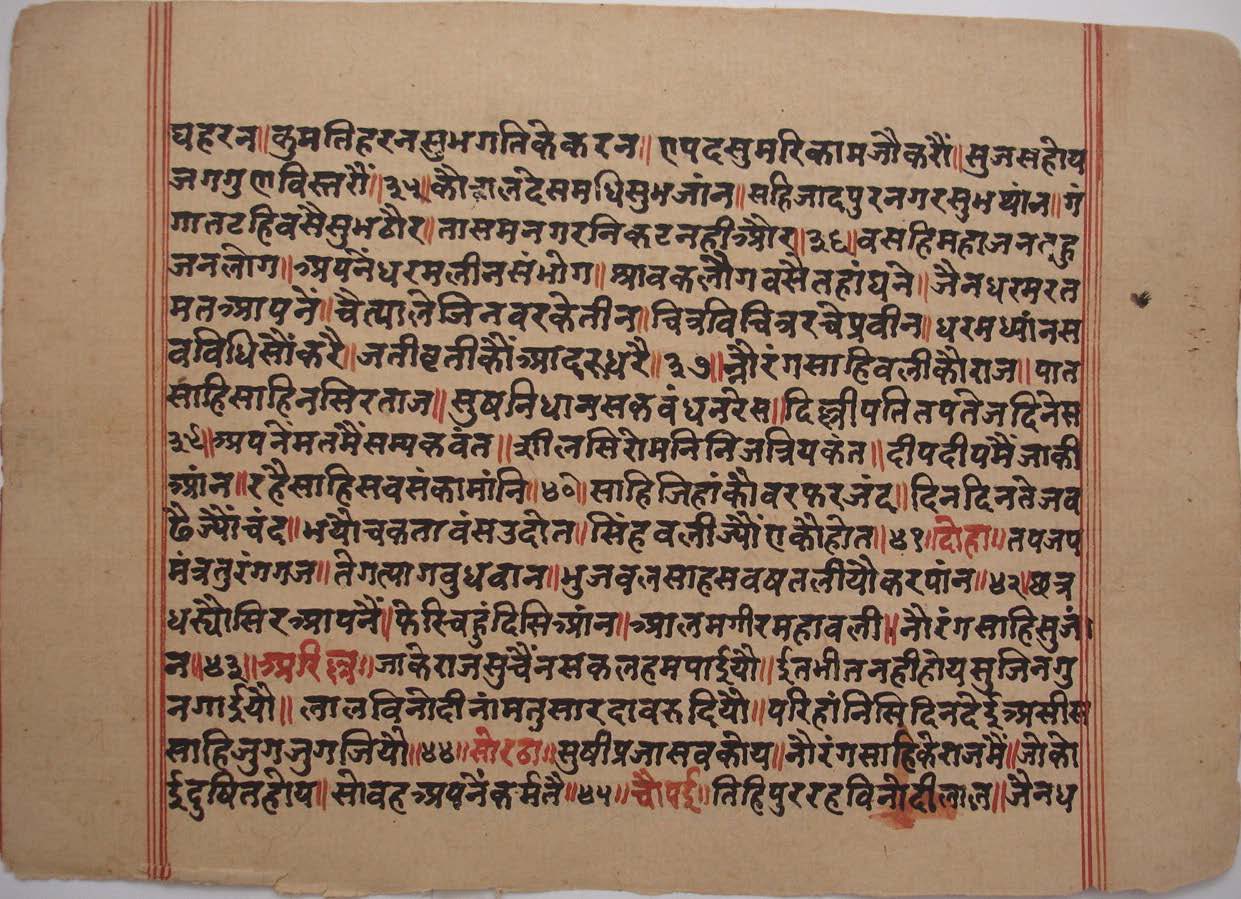 घहरन॥कुमतिहरनसुभगतिकेकरन॥एपदसुमरिकामजौकरौं॥सुजसहोय
जगगुणविस्तरौं॥३५॥कौशलदेसमधिसुभजांन॥सहिजादपुरनगरसुभथांन॥गं
गातटहिवसैसुभठौर॥तासमनगरनिकटनहीऔर॥३६॥वसहिमहाजनतहु
जनलोग॥अपनेंधरमलीनसंभोग॥श्रावकलौगवसैतहांघने॥जैनधरमरत
मतआपनें॥चैत्यालेजिनवरकेतीन॥चित्रविचित्ररचेप्रवीन॥धरमध्यांनस
वविधिसौंकरै॥जतीव्रतीकौंआदरधरै॥३७॥नौरंगसाहिवलीकौराज॥पात
साहिसाहिनसिरताज॥सुषनिधानसकवंधनरेस॥दिल्लीपतितपतेजदिनेस
३९॥अपनेंमतमैंसम्यकवंत॥सीलसिरोमनिनिजत्रियकंत॥दीपदीपमैंजाकी
आंन॥रहैसाहिसवसंकामांनि॥४०॥साहिजिहांकौवरफरजंद॥दिनदिनतेजव
ढैज्यौंचंद॥भयौचकतावंसउदोत॥सिंहवलीज्यौंएकौहोत॥४१॥दोहा॥तपजप
मंत्रतुरंगगज॥तेगत्यागवुधवान॥भुजवलसाहसवषतलीयौकरपांन॥४२॥छत्र
धस्यौसिरआपनैं॥फेस्चिहुंदिसिआंन॥आलमगीरमहावली॥नौरंगसाहिसुजां
न॥४३॥अरिल्ल॥जाकेराजसुचैंनसकलहमपाईयौ॥ईतभीतनहीहोयसुजिनगु
नगाईयौ॥लालविनोदीनांमतुसारदावरुदियौ॥परिहांनिसिदिनदेईअसीस
साहिजुगजुगजियौ॥४४॥सोरठा॥सुषीप्रजासवकोय॥नौरंगसाहिकेराजमैं॥जोको
ईदुषितहोय॥सोवहअपनेंकर्मतै॥४५॥चौपई॥तिहिपुररहविनोदीलाल॥जैनध